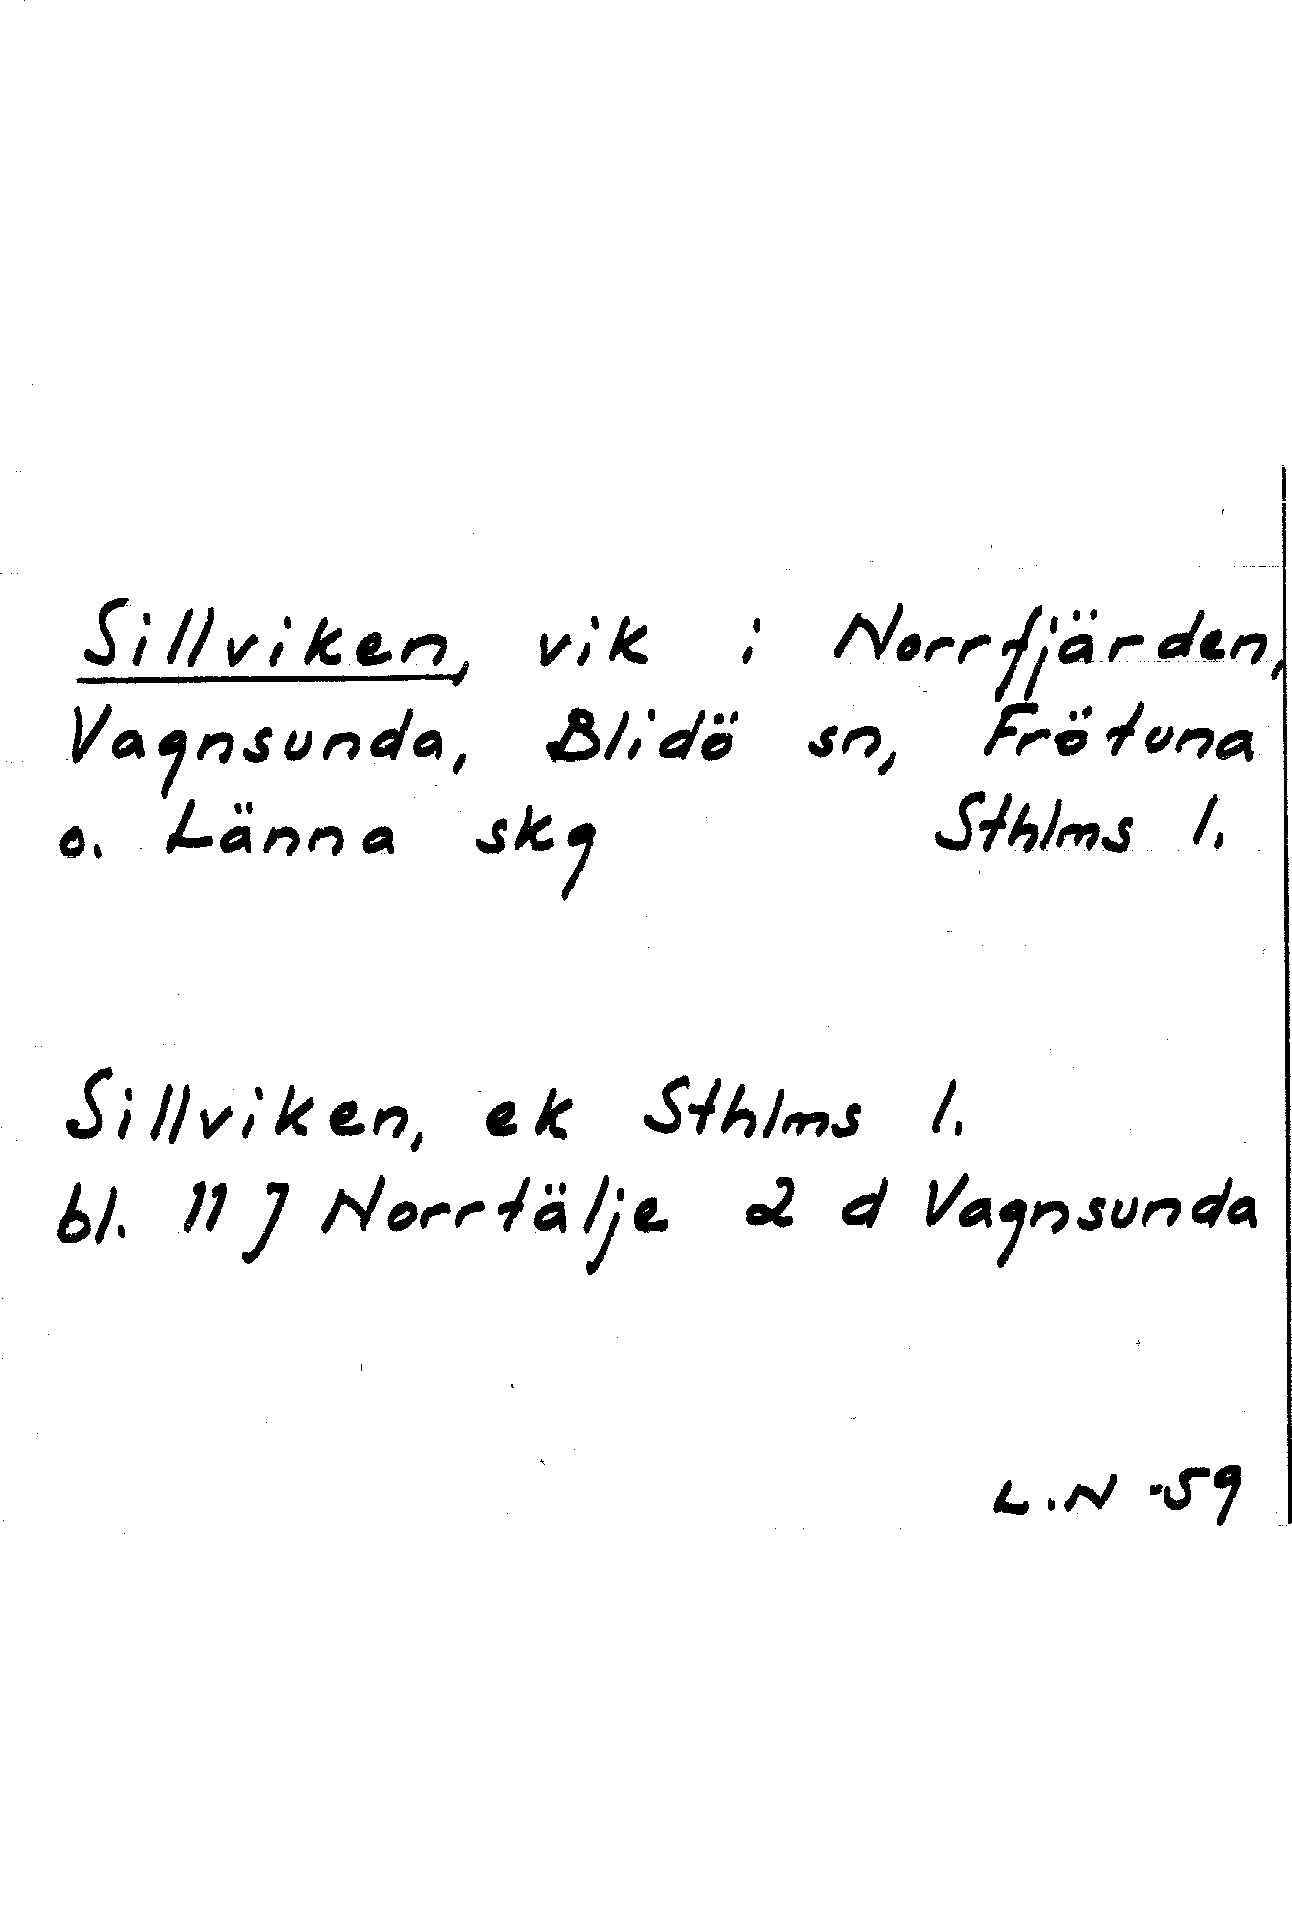 Sillviken, vik i Norrfjärden,
Vagnsunda, Blidö sn, Frötuna
o. Länna skg Sthlms l.
Sillviken, ek Sthlms l.
bl. 11 J Norrtälje 2 d Vagnsunda
L.N -59